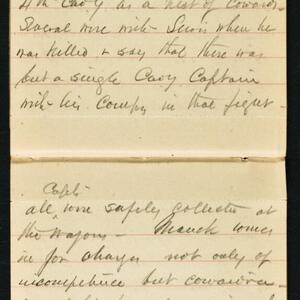 4th Cavy as a nest of Cowards.
Several were with Lewis when he
was killed & say that there was
but a single Cavy Captain
with his Compy in that fight -
Capts
all were safely collected at
the wagons - Mauck comes
in for charges not only of
incompetence but cowardice